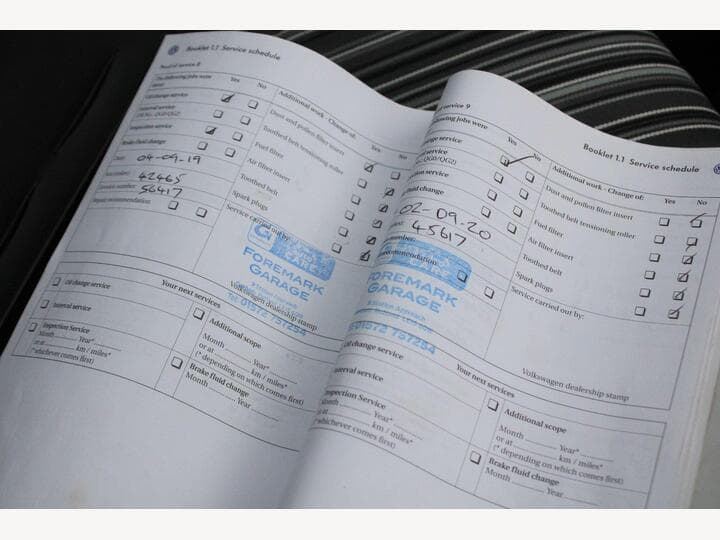 Booklet 1.1 Service schedule
Proof of service 8
The following jobs were
Yes
No
Additional work - Change of:
Yes
No
Oil change service
Dust and pollen filter insert
Interval service
Toothed belt tensioning roller
Inspection service
Fuel filter
Brake fluid change
Air filter insert
Date:
04-09-19
Toothed belt
42465
Spark plugs
56417
Service carried out by:
Repair recommendation:
FOREMARK
GARAGE
Tel: 01572 757254
Volkswagen dealership stamp
Your next services
Oil change service
Interval service
Inspection Service
Month Year*
or at km / miles*
(*whichever comes first)
Additional scope
Month Year*
or at km / miles*
(* depending on which comes first)
Brake fluid change
Month Year
Booklet 1.1 Service schedule
service 9
following jobs were
Yes
No
Additional work - Change of:
Yes
No
change service
Dust and pollen filter insert
service
Toothed belt tensioning roller
service
Fuel filter
change
Air filter insert
02-09-20
Toothed belt
45617
Spark plugs
number:
Service carried out by:
recommendation:
CARE
FOREMARK
GARAGE
01572 757254
Volkswagen dealership stamp
Your next services
Oil change service
Interval service
Inspection Service
Month Year*
or at km / miles*
(*whichever comes first)
Additional scope
Month Year*
or at km / miles*
(* depending on which comes first)
Brake fluid change
Month Year